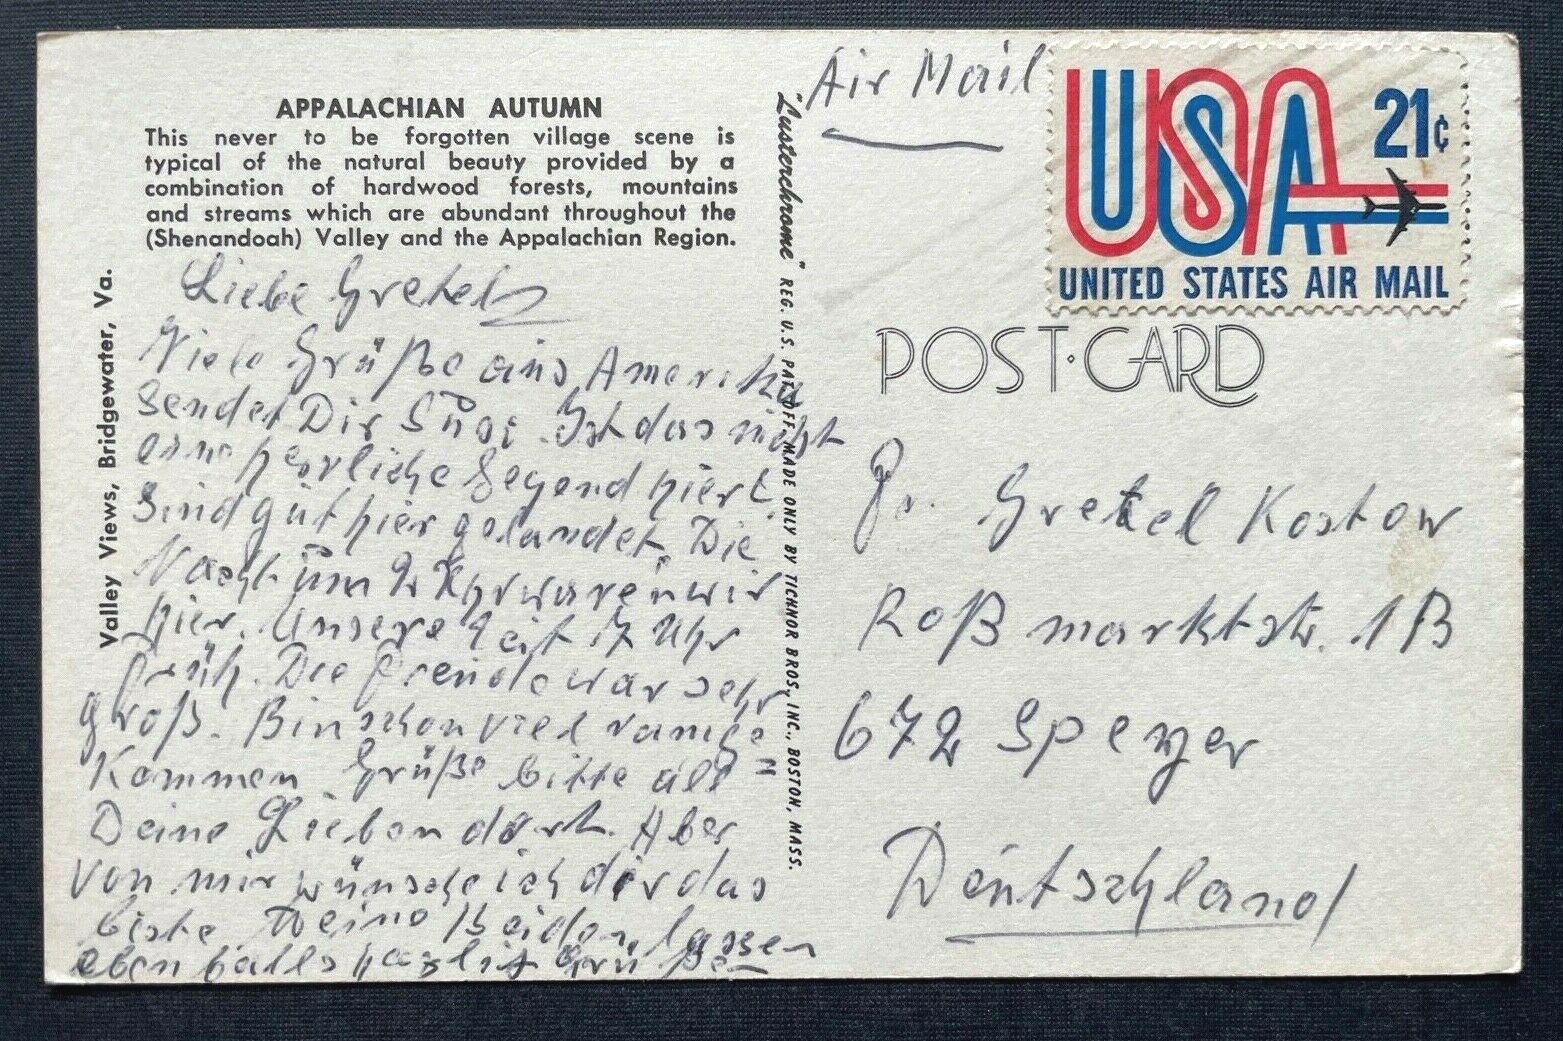 APPALACHIAN AUTUMN
This never to be forgotten village scene is
typical of the natural beauty provided by a
combination of hardwood forests, mountains
and streams which are abundant throughout the
(Shenandoah) Valley and the Appalachian Region.
Valley Views, Bridgewater, Va.
Liebe Gretel
Viele Grüße aus Amerika
sendet Dir Susi. Ist das nicht
eine herrliche Gegend hier.
Sind gut hier gelandet. Die
Nacht um 2 Uhr waren wir
hier. Unsere Zeit 7 Uhr
früh. Die Freude war sehr
groß. Bin schon viel rumge
kommen. Grüße bitte all
Deine Lieben dort. Aber
von mir wünsche ich dir das
beste. Meine Beiden lassen
ebenfalls herzlich Grüßen
"Lusterchrome" REG. U.S. PAT. OFF. MADE ONLY BY TICHNOR BROS., INC., BOSTON, MASS.
Air Mail
USA 21¢
UNITED STATES AIR MAIL
POST·CARD
Fr. Gretel Kostow
Roßmarktstr. 1B
672 Speyer
Deutschland